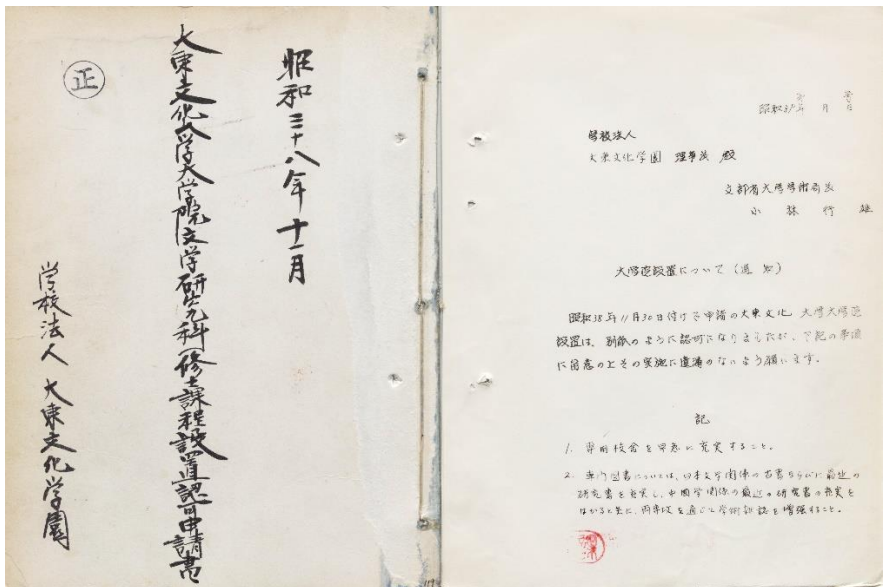 昭和三十八年十一月
大東文化大学大学院文学研究科(修士課程)設置認可申請書
正
学校法人 大東文化学園
昭和39年 月 日
学校法人
大東文化学園 理事長 殿
文部省大学学術局長
小林行雄
大学院設置について(通知)
昭和38年11月30日付けで申請の大東文化大学大学院
設置は、別紙のように認可になりましたが、下記の事項
に留意の上その実施に遺漏のないよう願います。
記
1. 専用校舎を早急に充実すること。
2. 専門図書については、日本文学関係の古書ならびに最近の
研究書を充実し、中国学関係の最近の研究書の充実を
はかると共に、両専攻を通じて学術雑誌を増強すること。